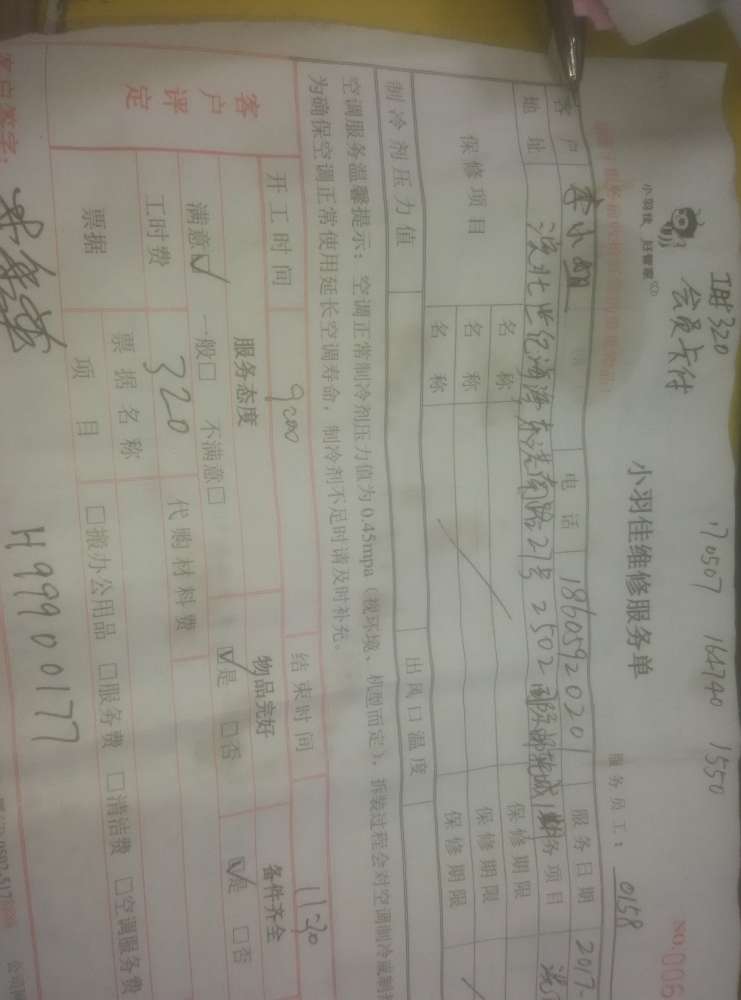 工时320
会员卡付
170507 164740 1550
小羽佳 好管家
小羽佳维修服务单
服务员工： 0158
NO.006
客户 李小姐 电话 18605920201 服务日期 2017.
地址 27号2502 服务项目
保修项目 名称 保修期限
名称 保修期限
名称 保修期限
制冷剂压力值 出风口温度
空调服务温馨提示：空调正常制冷剂压力值为0.45mpa（视环境、机型而定），拆装过程会对空调制冷或制
为确保空调正常使用延长空调寿命，制冷剂不足时请及时补充。
开工时间 9:00 结束时间 11:30
客户评定 服务态度 物品完好 备件齐全
满意☑ 一般□ 不满意□ ☑是 □否 ☑是 □否
工时费 320 代购材料费
票据 票据名称
项目 □搬办公用品 □服务费 □清洁费 □空调服务费
客户签字：
H99900177